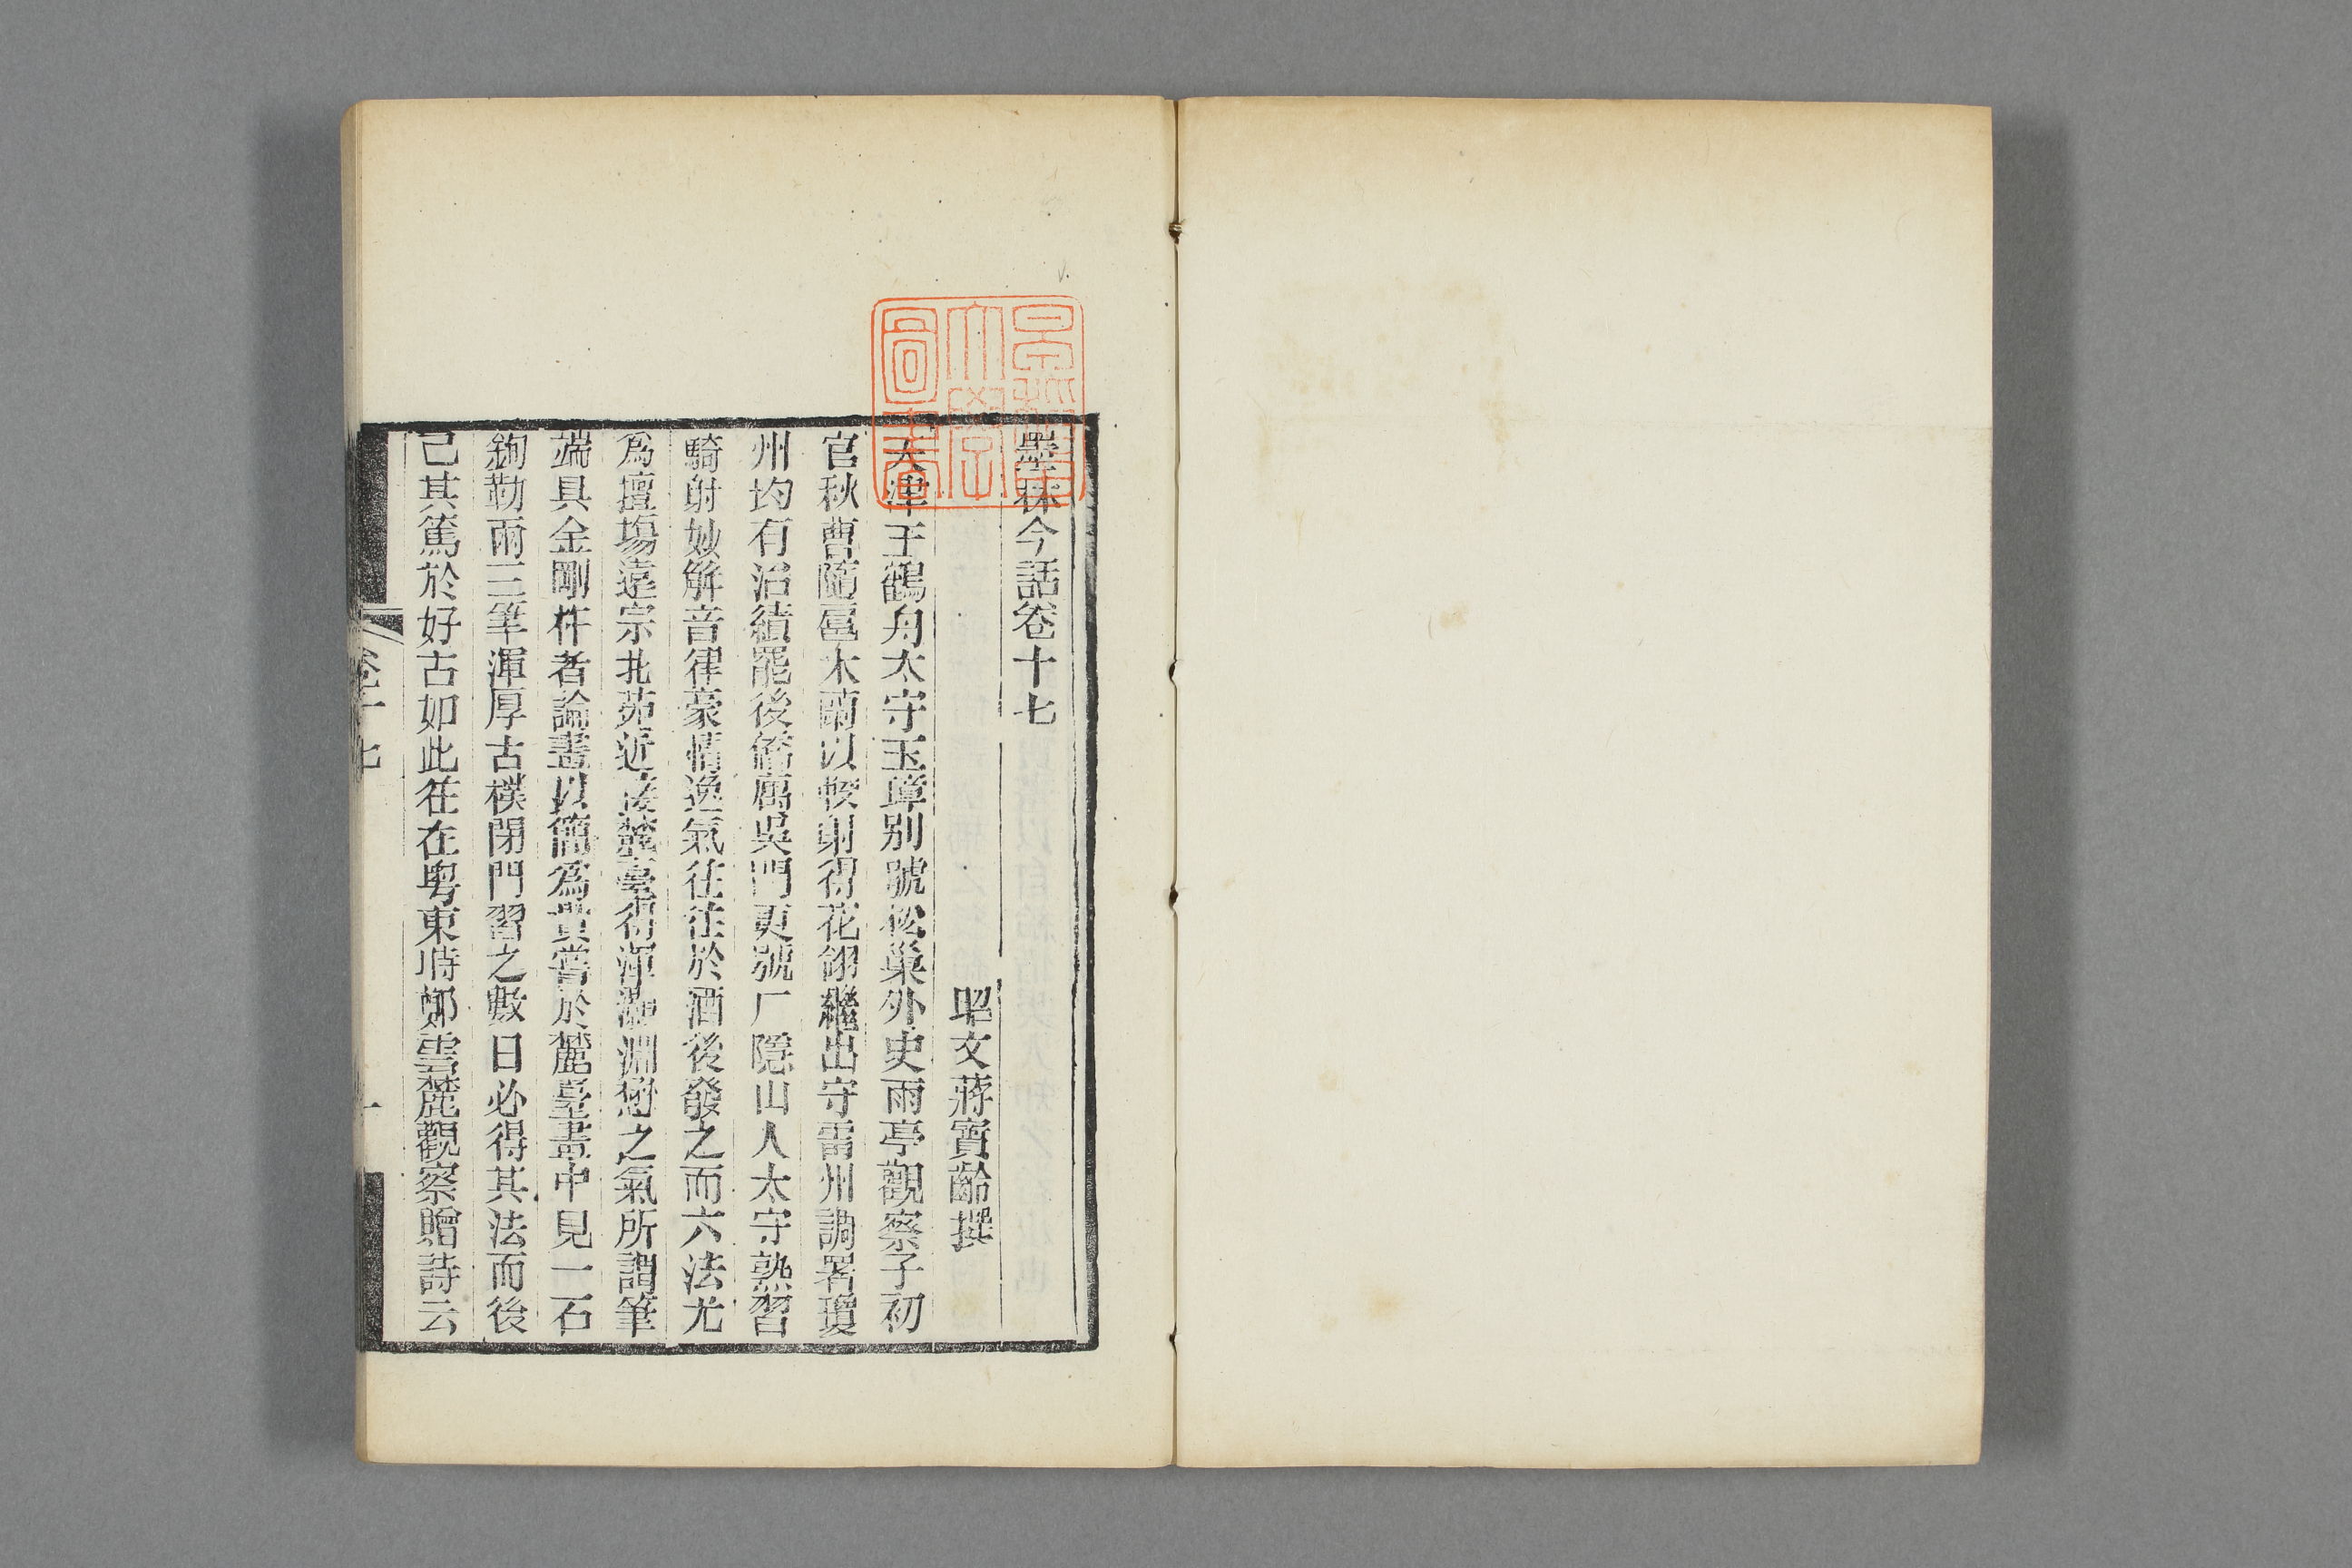 墨林今話卷十七
昭文蔣寶齡撰
天津王鶴舟太守玉璋別號松巢外史雨亭觀察子初
官秋曹隨扈木蘭以校射得花翎繼出守雷州調署瓊
州均有治績罷後僑寓吳門更號厂隱山人太守熟習
騎射妙解音律豪情逸氣往往於酒後發之而六法尤
爲擅塲遠宗北苑近法麓臺得渾灝淵懋之氣所謂筆
端具金剛杵者論畫以簡爲貴嘗於麓臺畫中見一石
鉤勒兩三筆渾厚古樸閉門習之數日必得其法而後
已其篤於好古如此往在粵東時鄭雲麓觀察贈詩云
卷十七
一
燕京大學圖書